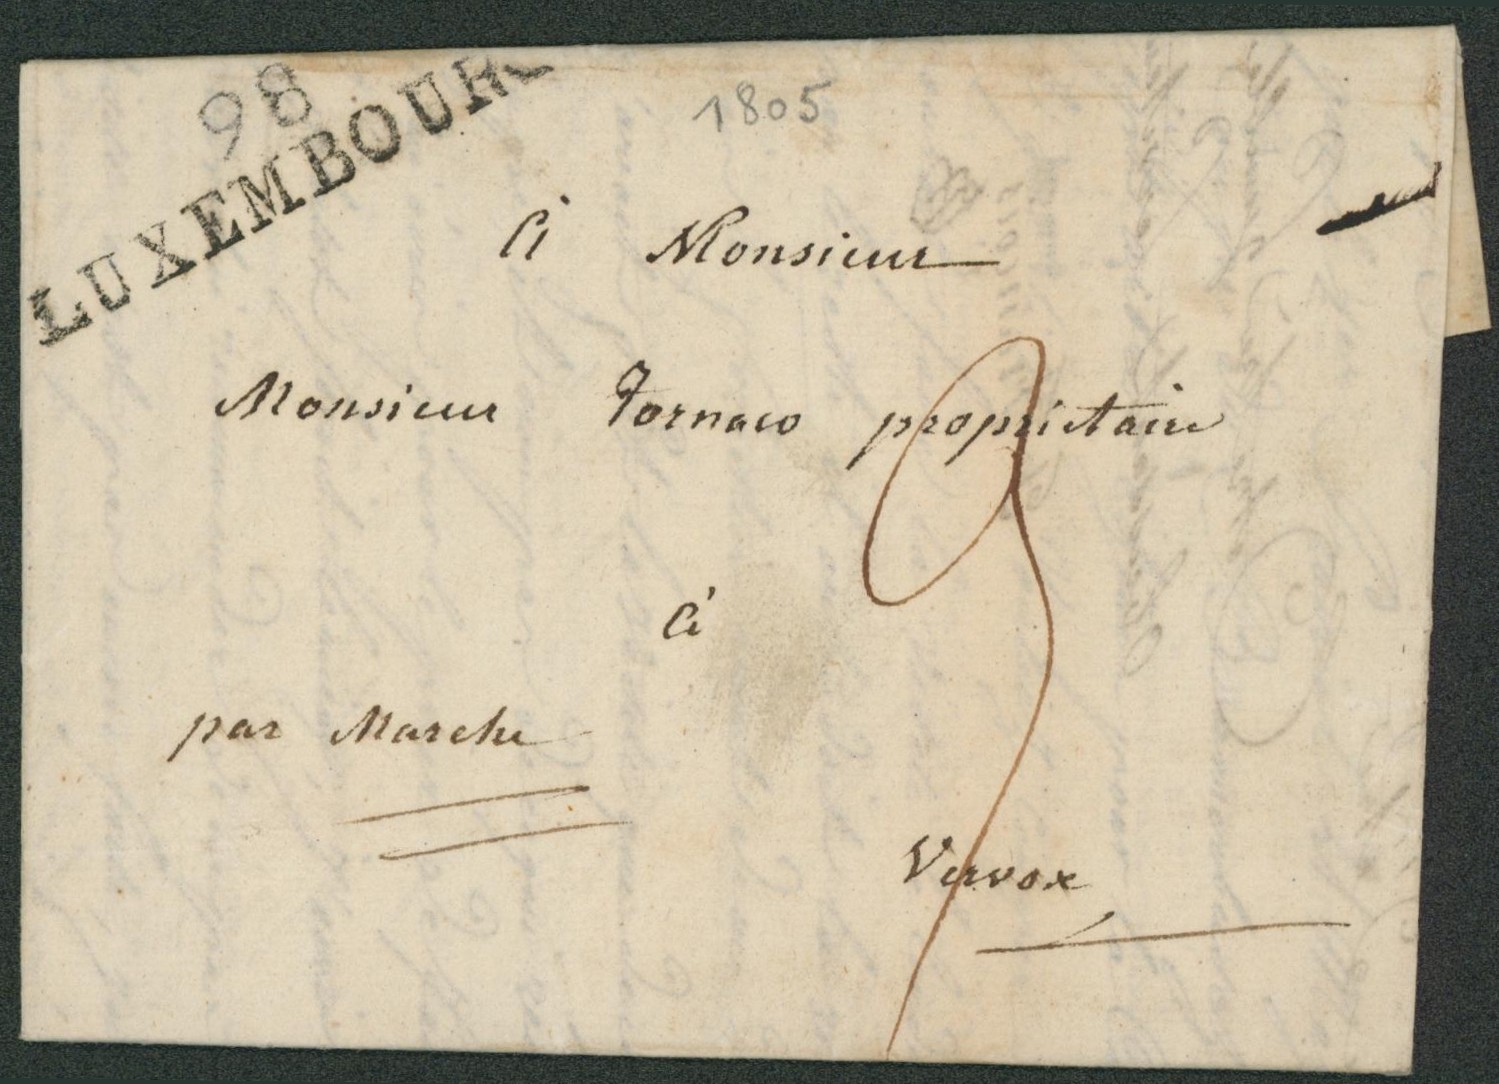 98
LUXEMBOURG
1805
A Monsieur
Monsieur Tornaco propriétaire
à
par Marche
Vervox
3